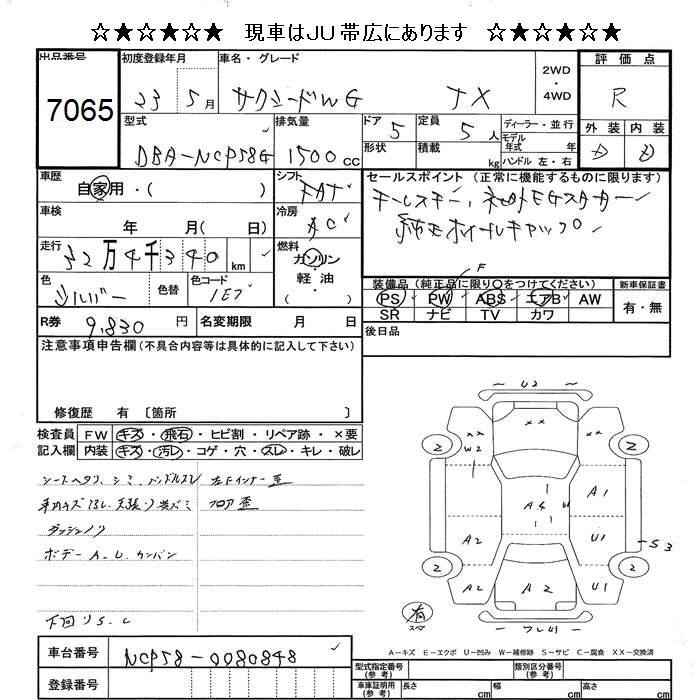 ☆★☆★☆★ 現車はJU帯広にあります ☆★☆★☆★
出品番号 7065
初度登録年月 23 5月
車名・グレード サクシードWG TX
2WD・4WD
評価点 R
外装 内装
D D
型式 DBA-NCP58G
排気量 1500cc
ドア 5
形状
定員 5人
積載 kg
ディーラー・並行
モデル年式 年
ハンドル 左・右
車歴 自家用・( )
シフト FAT
セールスポイント (正常に機能するものに限ります)
キーレスキー、社外EGスターター
純正ホイールキャップ
車検 年 月( 日)
冷房 AC
走行 32万4千340km
燃料 ガソリン・軽油・( )
色 シルバー
色替
色コード 1E7
装備品 (純正品に限り○をつけてください)
F
PS PW ABS エアB AW
SR ナビ TV カワ
新車保証書 有・無
R券 9,830円
名変期限 月 日
後日品
注意事項申告欄(不具合内容等は具体的に記入して下さい)
修復歴 有〔箇所 〕
検査員記入欄
FW キズ・飛石・ヒビ割・リペア跡・×要
内装 キズ・汚レ・コゲ・穴・スレ・キレ・破レ
シートヘタリ、シミ、ハンドルスレ 左Fインナー歪
フロア歪
ダッシュノリ
ボデーA.U.カンバン
下回りS.C
U2
XX XX
W2
2 2
A4
A1
A2 U1
S3
2 2
A2 A2 U1
有 スペア
A-キズ E-エクボ U-凹み W-補修跡 S-サビ C-腐食 XX-交換済
車台番号 NCP58-0080848
登録番号
型式指定番号(参考)
類別区分番号(参考)
車庫証明用(参考) 長さ cm 幅 cm 高さ cm